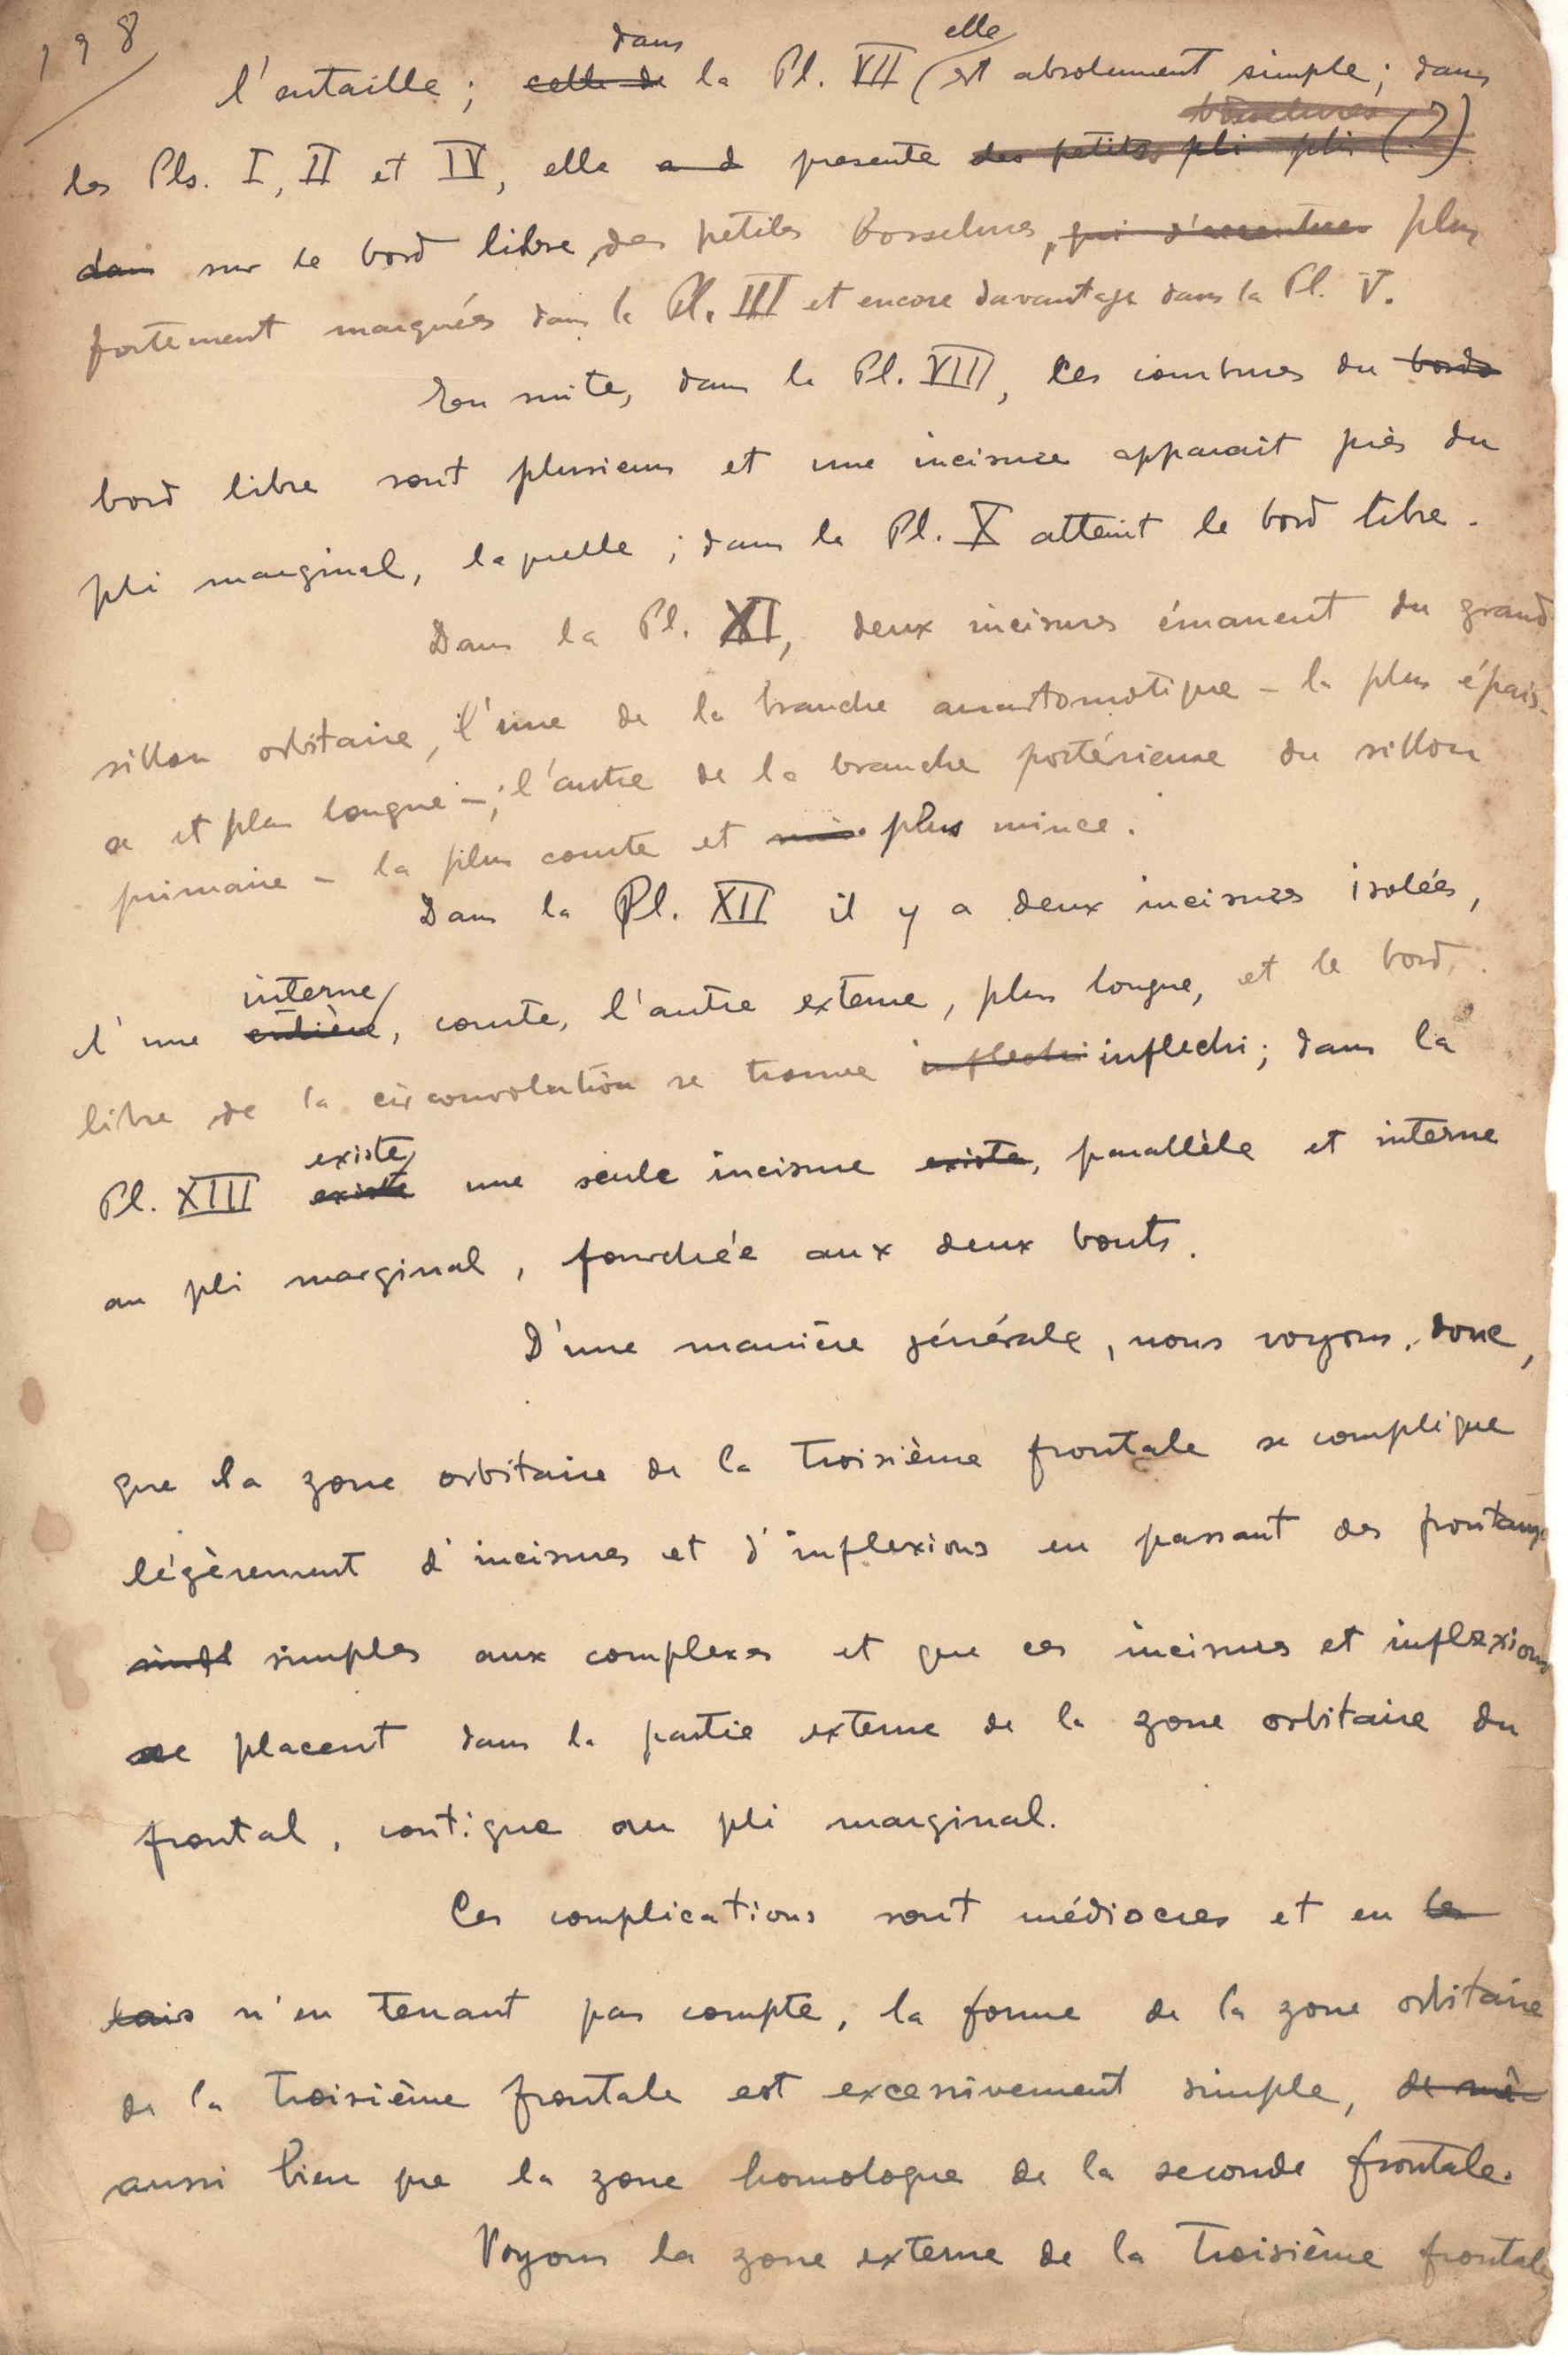 198
l'entaille ; dans la Pl. VII elle est absolument simple ; dans
les Pls. I, II et IV, elle presente
sur le bord libre des petites bosselures, plus
fortement marquées dans la Pl. III et encore davantage dans la Pl. V.
En suite, dans la Pl. VIII, les courbures du
bord libre sont plusieurs et une incisure apparait près du
pli marginal, laquelle ; dans la Pl. X atteint le bord libre.
Dans la Pl. XI, deux incisures émanent du grand
sillon orbitaire, l'une de la branche anastomotique – la plus épais-
se et plus longue – ; l'autre de la branche postérieure du sillon
primaire – la plus courte et plus mince.
Dans la Pl. XII il y a deux incisures isolées,
l'une interne, courte, l'autre externe, plus longue, et le bord
libre de la circonvolution se trouve inflechi ; dans la
Pl. XIII existe une seule incisure, parallèle et interne
au pli marginal, fourchée aux deux bouts.
D'une manière générale, nous voyons, donc,
que la zone orbitaire de la troisième frontale se complique
légèrement d'incisures et d'inflexions en passant des frontaux
simples aux complexes et que ces incisures et inflexions
se placent dans la partie externe de la zone orbitaire du
frontal, contigue au pli marginal.
Ces complications sont médiocres et en
n'en tenant pas compte, la forme de la zone orbitaire
de la troisième frontale est excessivement simple,
aussi bien que la zone homologue de la seconde frontale.
Voyons la zone externe de la troisième frontale,